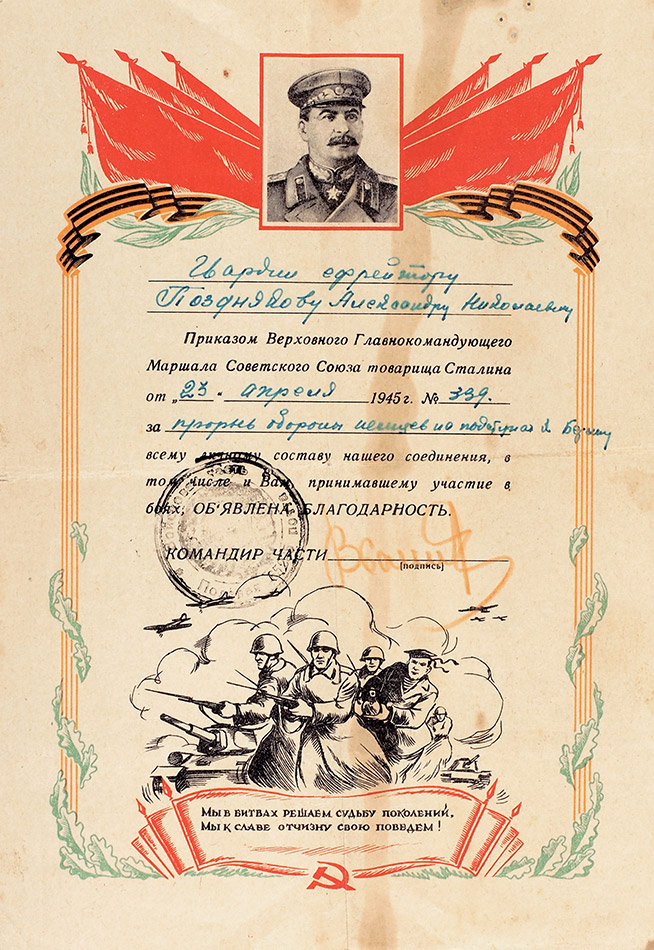 Гвардии ефрейтору
Позднякову Александру Николаевичу
Приказом Верховного Главнокомандующего
Маршала Советского Союза товарища Сталина
от „23“ апреля 1945 г. № 339.
за прорыв обороны немцев на подступах к Берлину
всему личному составу нашего соединения, в
том числе и Вам, принимавшему участие в
боях, ОБ‘ЯВЛЕНА БЛАГОДАРНОСТЬ.
КОМАНДИР ЧАСТИ
(подпись)
МЫ В БИТВАХ РЕШАЕМ СУДЬБУ ПОКОЛЕНИЙ,
МЫ К СЛАВЕ ОТЧИЗНУ СВОЮ ПОВЕДЕМ!